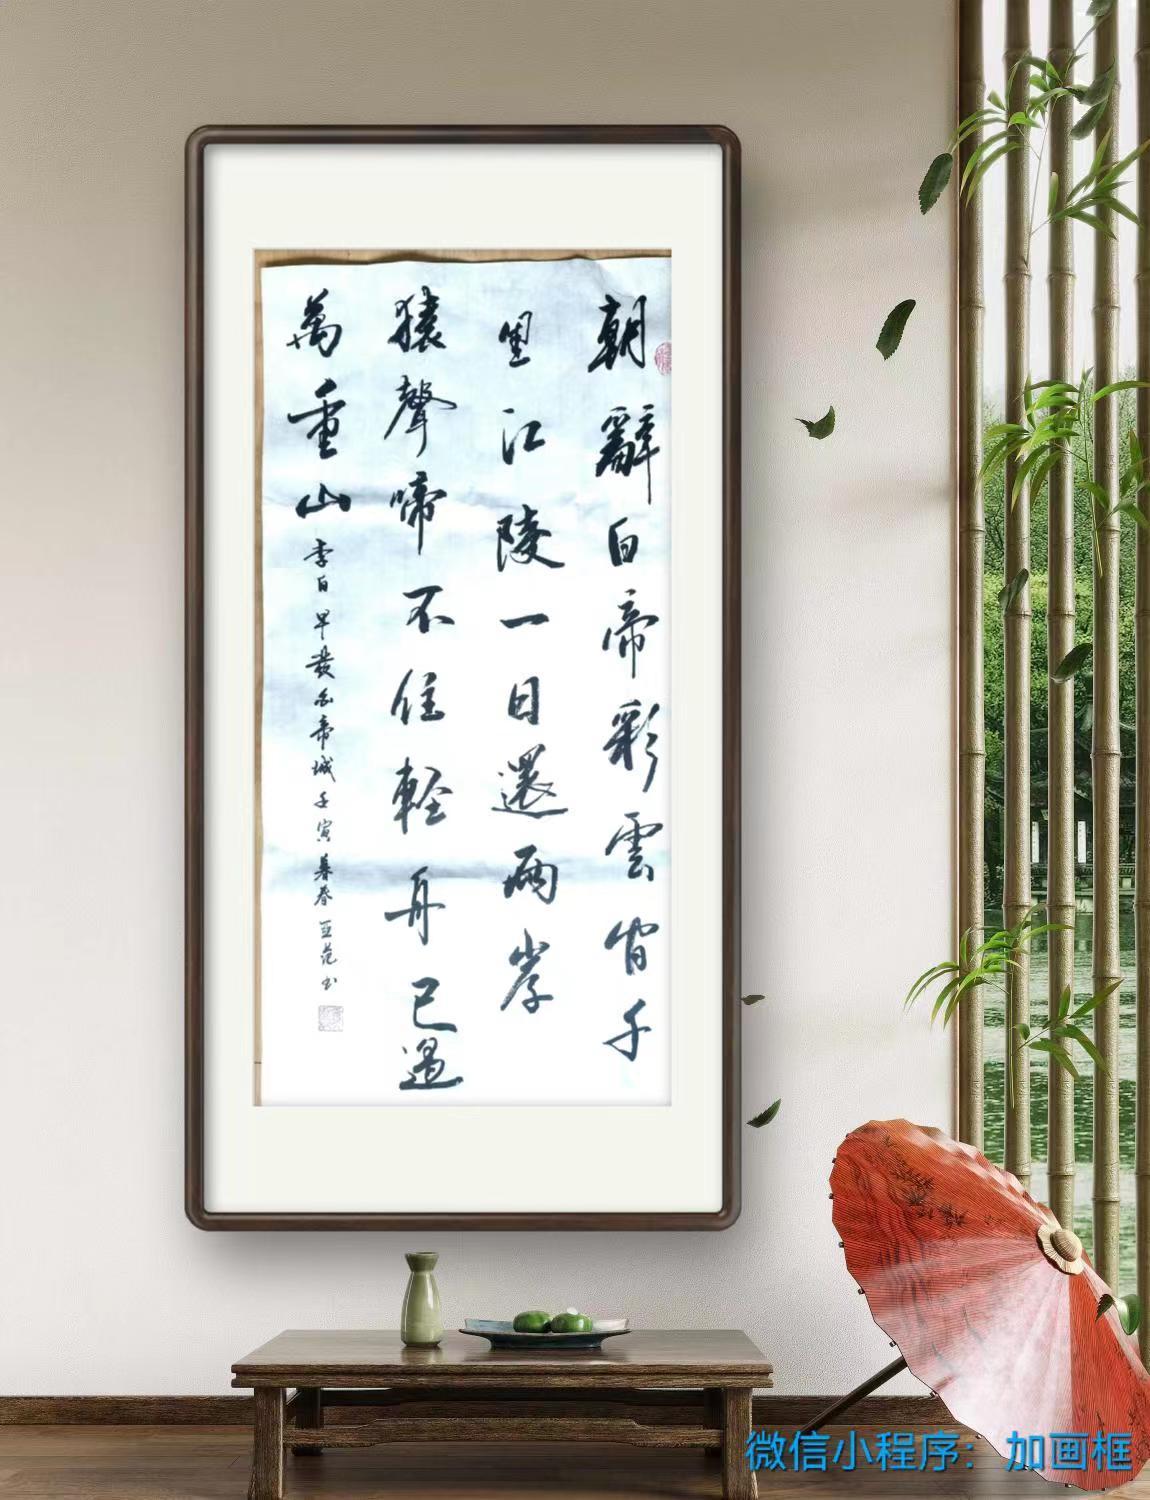 朝辭白帝彩雲間千
里江陵一日還兩岸
猿聲啼不住輕舟已過
萬重山 李白早發白帝城 壬寅暮春 范书
微信小程序：加画框